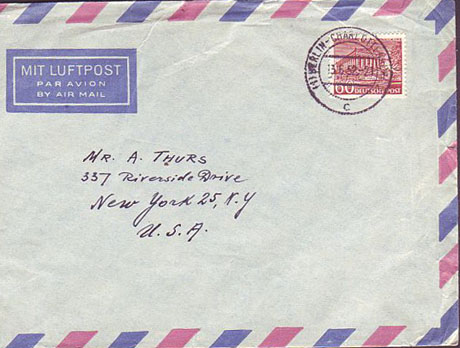 MIT LUFTPOST
PAR AVION
BY AIR MAIL
BERLIN-CHARLOTTENBURG
C
60 DEUTSCHE POST
MR. A. THURS
337 Riverside Drive
New York 25, N.Y
U.S.A.